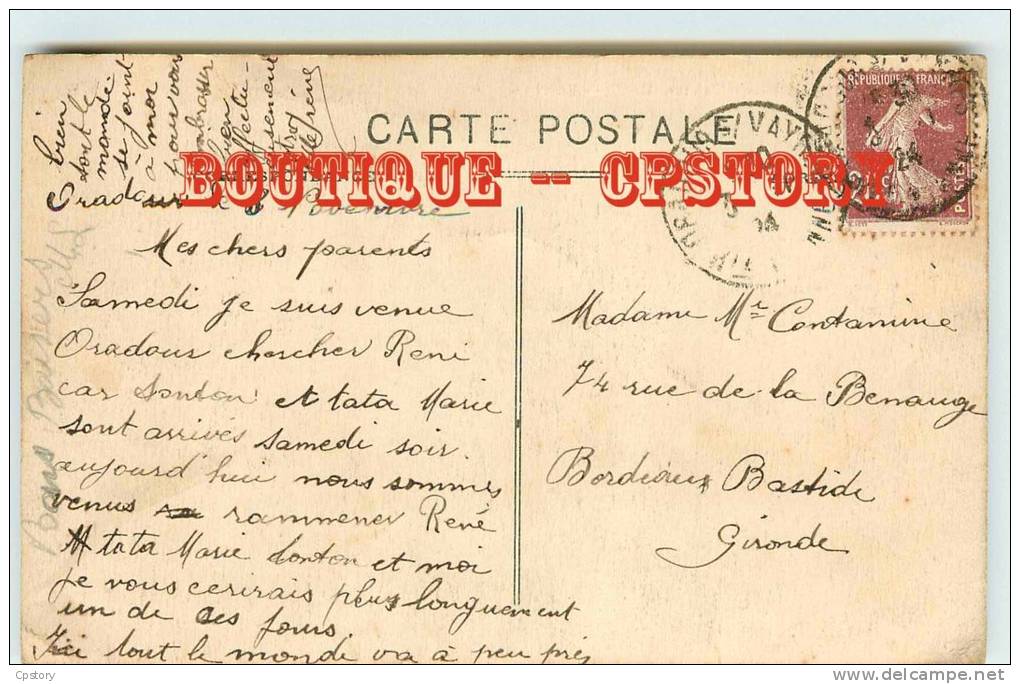 CARTE POSTALE
BOUTIQUE -- CPSTORY
REPUBLIQUE FRANÇAISE
POSTES
24
Oradour
Mes chers parents
Samedi je suis venue
Oradour chercher René
car tonton et tata Marie
sont arrivés samedi soir.
aujourd'hui nous sommes
venus rammener René
tata Marie tonton et moi
je vous ecrirais plus longuement
un de ces jours
Ici tout le monde va à peu près
bien
tout le
monde
se joint
à moi
pour vous
embrasser
bien
Bons Baisers
Madame Mr Contamine
74 rue de la Benauge
Bordeaux Bastide
Gironde
Cpstory
www.delcampe.net